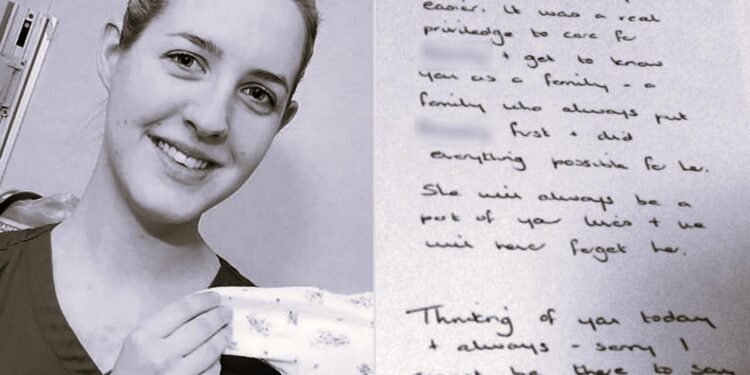 easier. It was a real
priviledge to care for
+ get to know
you as a family - a
family who always put
first + did
everything possible for her.
She will always be a
part of your lives + we
will never forget her.
Thinking of you today
+ always - sorry I
cannot be there to say